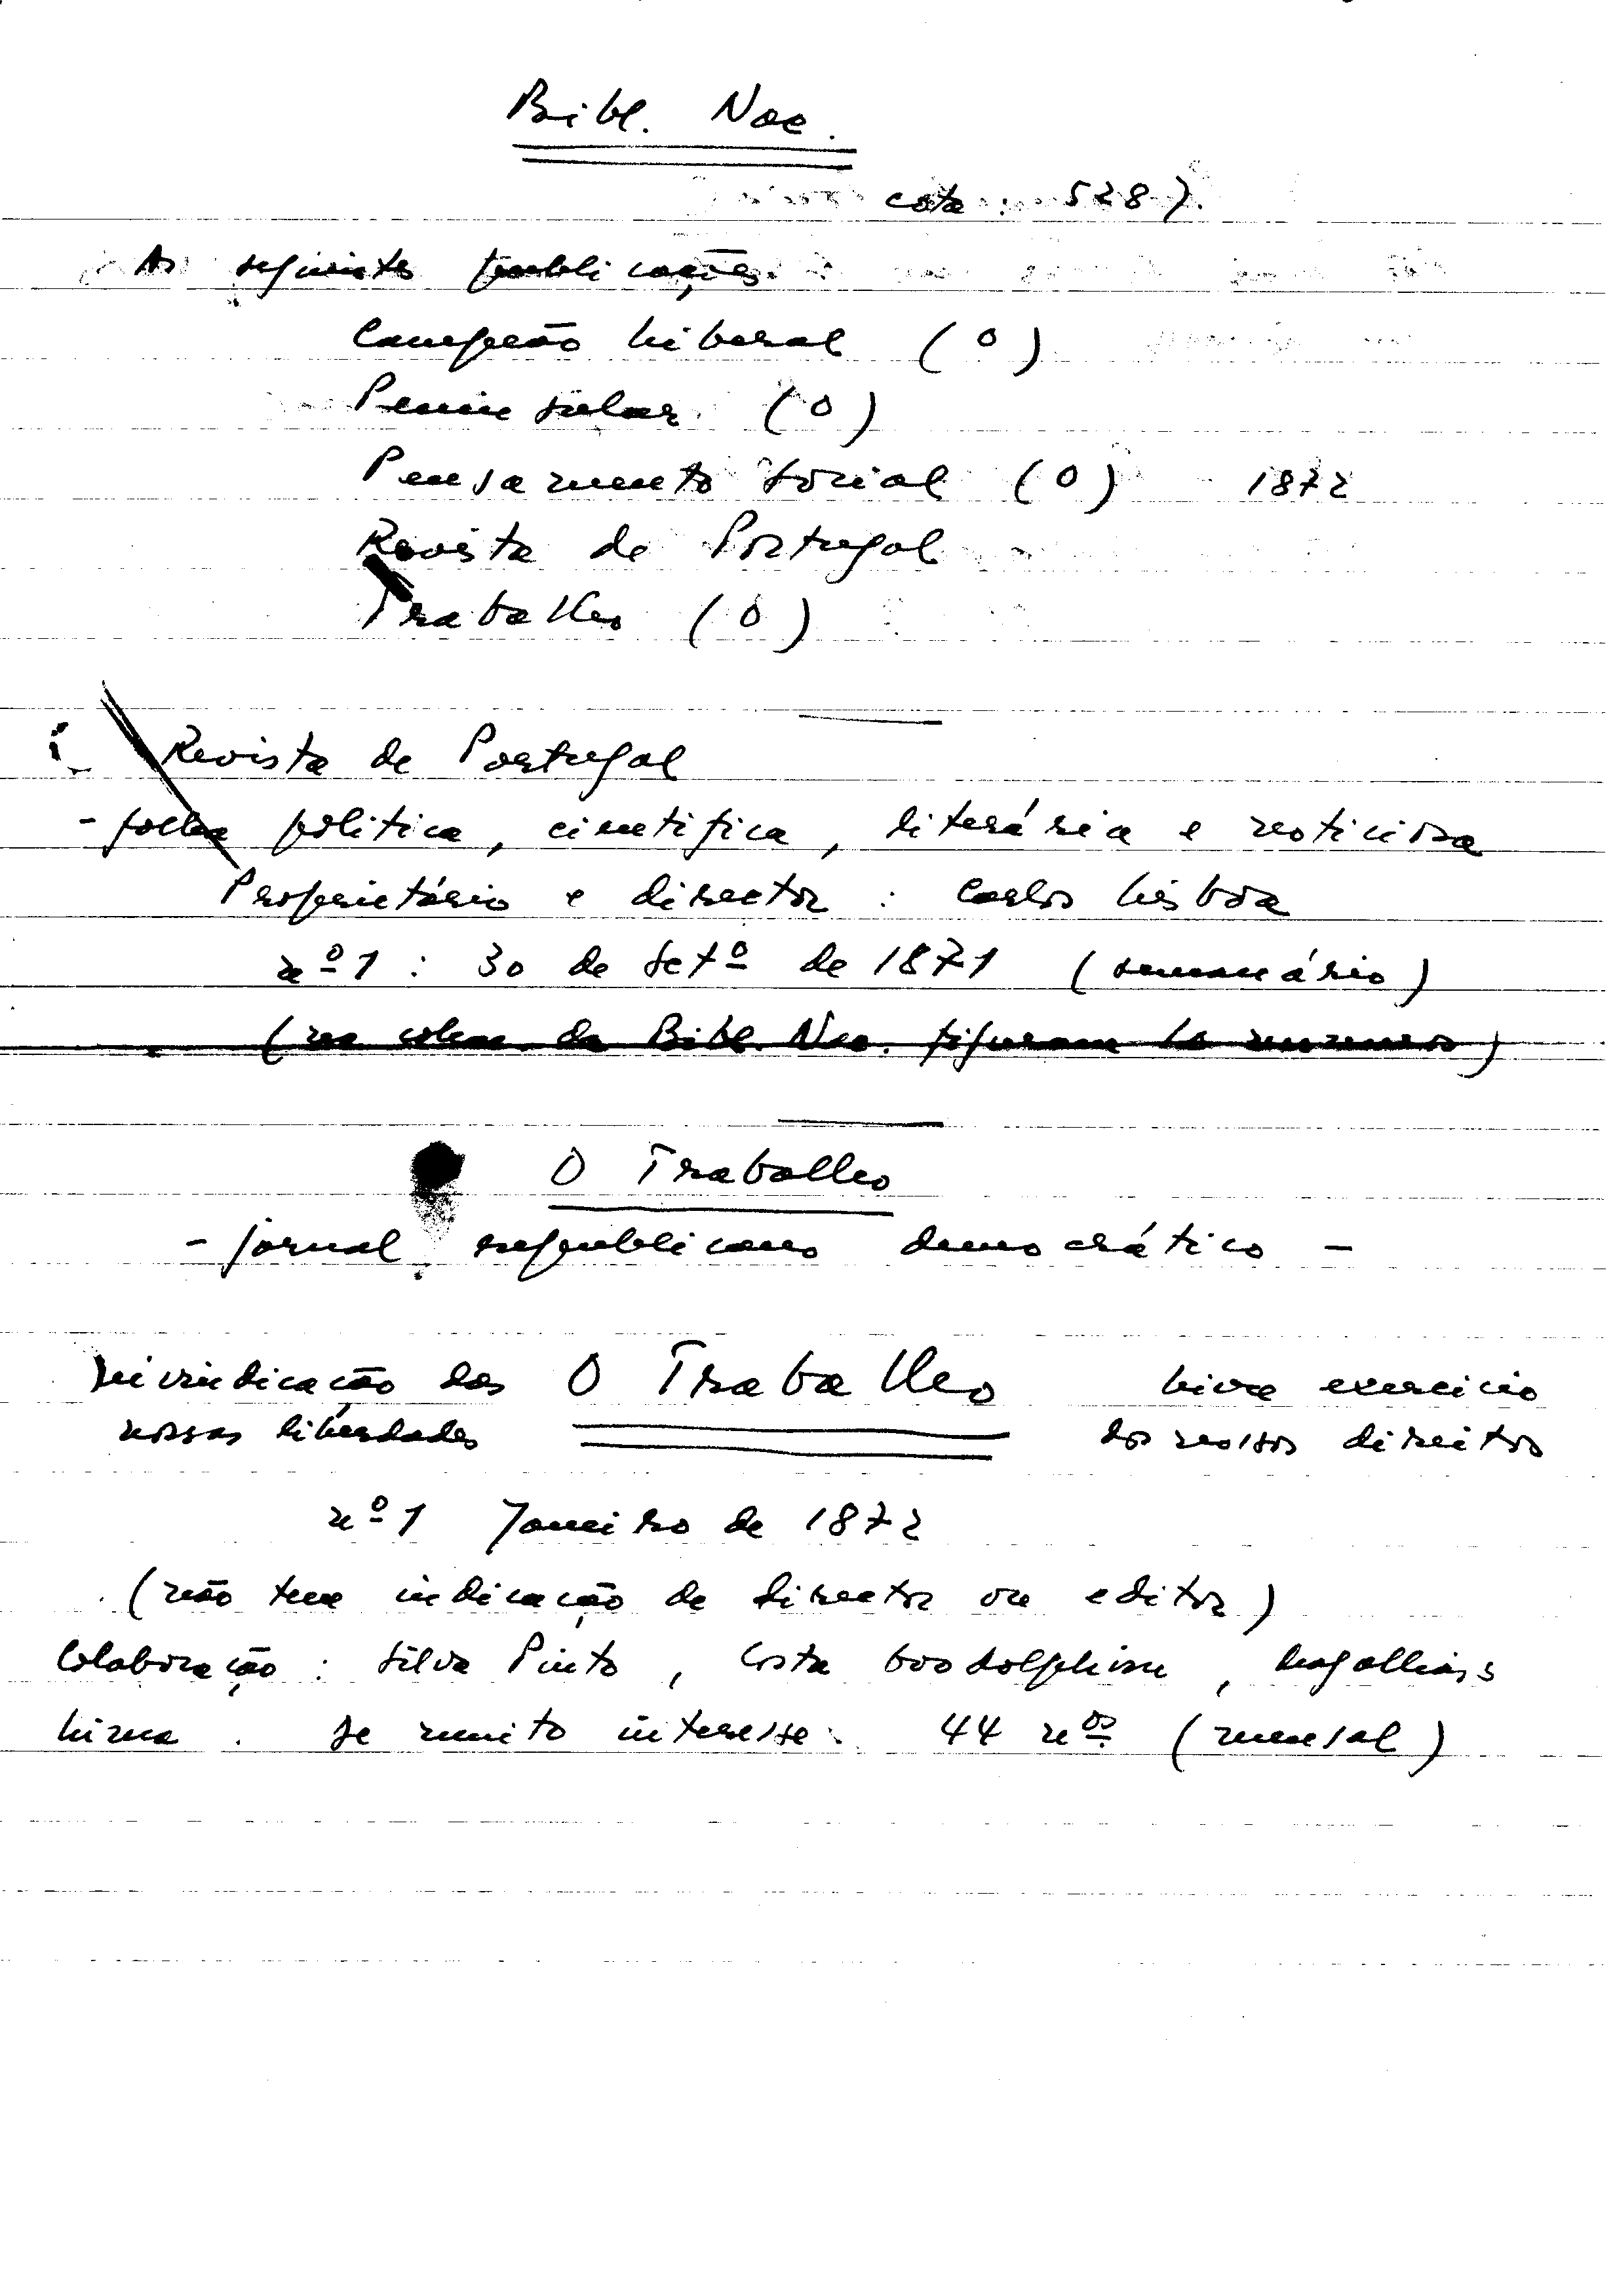 Bibl. Nac.
cota: 5287
As seguintes publicações:
Campeão Liberal (O)
Peninsular (O)
Pensamento Social (O) 1872
Revista de Portugal
Trabalho (O)
Revista de Portugal
- folha política, científica, literária e noticiosa
Proprietário e director: Carlos Lisboa
nº 1: 30 de Setº de 1871 (semanário)
(na colec. da Bibl. Nac. figuram 10 números)
O Trabalho
- jornal republicano democrático -
Reivindicação das O Trabalho Livre exercício
nossas liberdades dos nossos direitos
nº 1 Janeiro de 1872
(não tem indicação de director ou editor)
Colaboração: Silva Pinto, Costa Goodolphim, Magalhães
Lima. De muito interesse. 44 nºs (mensal)